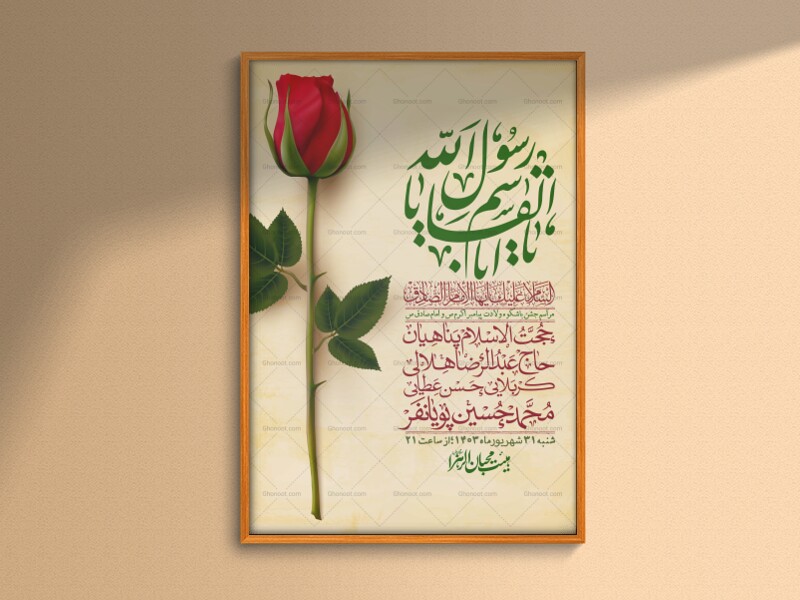 یا ابا القاسم یا رسول الله
السلام علیک ایها الامام الصادق
مراسم جشن باشکوه ولادت پیامبر اکرم ص و امام صادق ص
حجت الاسلام پناهیان
حاج عبدالرضا هلالی
کربلایی حسن عطایی
محمدحسین پویانفر
شنبه ۳۱ شهریورماه ۱۴۰۳؛ از ساعت ۲۱
بیت محبان الزهرا
Ghonoot.com